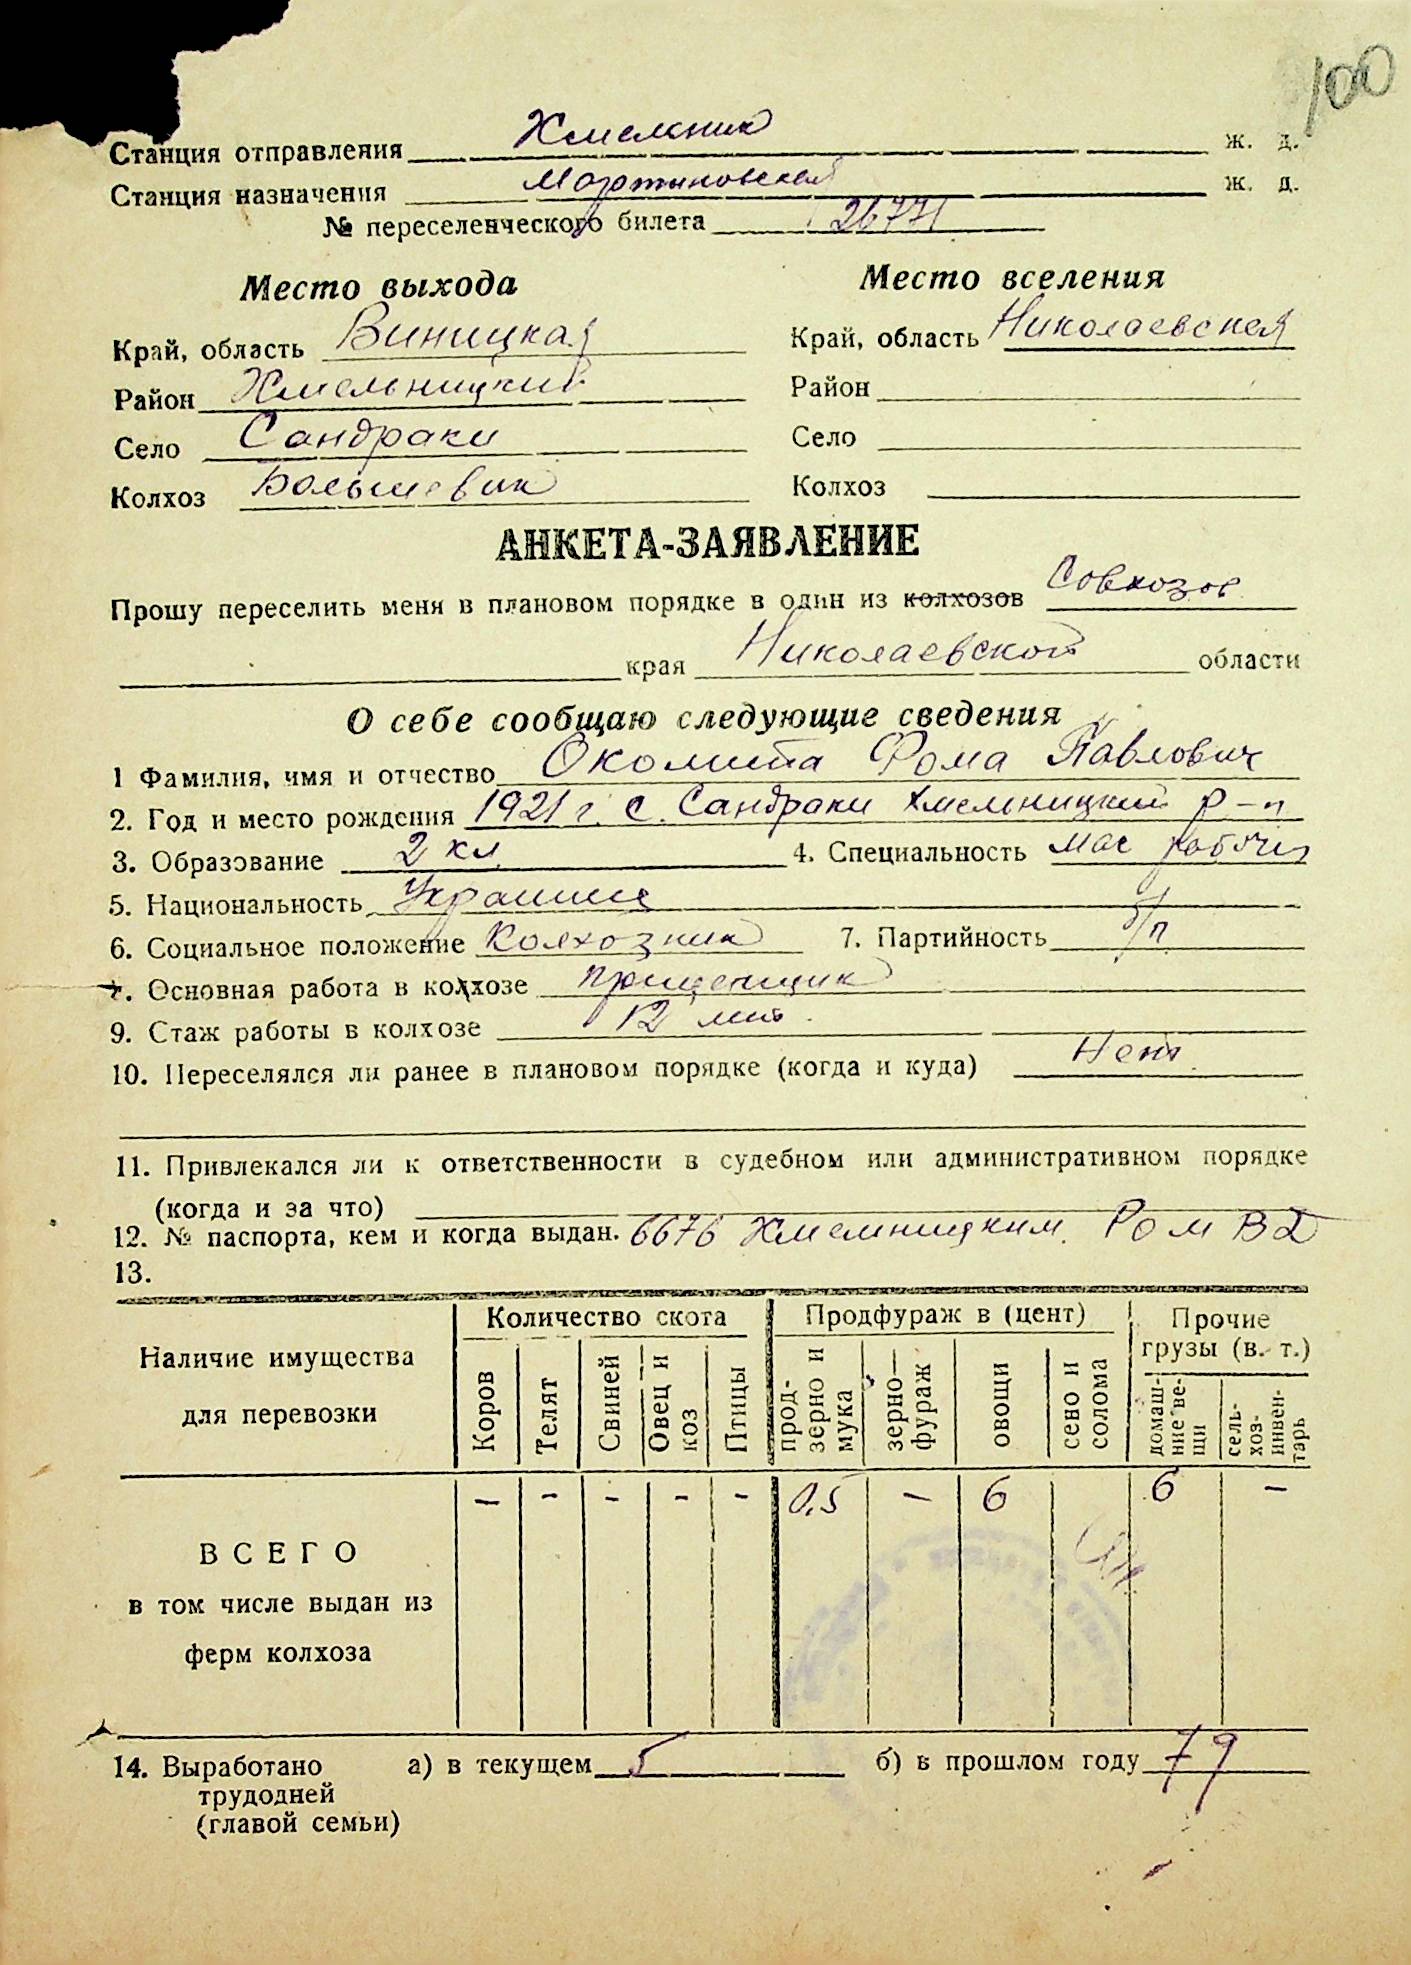 100
Станция отправления Хмельник ж. д.
Станция назначения Мартыновская ж. д.
№ переселенческого билета 26771
Место выхода
Край, область Виницкая
Район Хмельницкий
Село Сандраки
Колхоз Большевик
Место вселения
Край, область Николаевская
Район
Село
Колхоз
АНКЕТА-ЗАЯВЛЕНИЕ
Прошу переселить меня в плановом порядке в один из колхозов Совхозов
края Николаевской области
О себе сообщаю следующие сведения
1 Фамилия, имя и отчество Околита Фома Павлович
2. Год и место рождения 1921 г. с. Сандраки Хмельницкий р-н
3. Образование 2 кл 4. Специальность рабочий
5. Национальность Украинец
6. Социальное положение Колхозник 7. Партийность б/п
. Основная работа в колхозе прицепщик
9. Стаж работы в колхозе 12 лет.
10. Переселялся ли ранее в плановом порядке (когда и куда) Нет
11. Привлекался ли к ответственности в судебном или административном порядке
(когда и за что)
12. № паспорта, кем и когда выдан. 6676 Хмельницким. РОМВД
13.
Наличие имущества
для перевозки
Количество скота
Коров
Телят
Свиней
Овец и
коз
Птицы
Продфураж в (цент)
прод-
зерно и
мука
зерно—
фураж
овощи
сено и
солома
Прочие
грузы (в. т.)
домаш-
ние ве-
щи
сель-
хоз-
инвен-
тарь
- - - - - 0,5 - 6 6 -
ВСЕГО
в том числе выдан из
ферм колхоза
14. Выработано а) в текущем 5 б) в прошлом году 79
трудодней
(главой семьи)